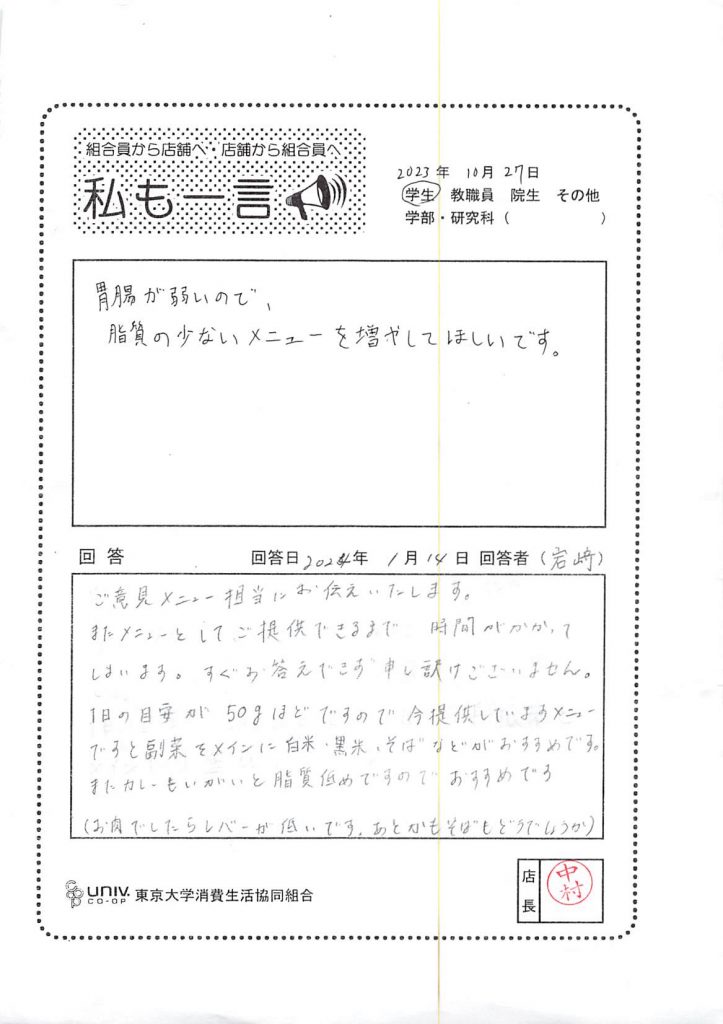 組合員から店舗へ・店舗から組合員へ
私も一言
2023年 10月27日
学生 教職員 院生 その他
学部・研究科( )
胃腸が弱いので、
脂質の少ないメニューを増やしてほしいです。
回答 回答日2024年 1月14日 回答者(岩﨑)
ご意見メニュー担当にお伝えいたします。
またメニューとしてご提供できるまで 時間がかかって
しまいます。すぐお答えできず申し訳ございません。
1日の目安が 50gほどですので今提供していますメニュー
ですと副菜をメインに白米・黒米・そばなどがおすすめです。
またカレーもいがいと脂質低めですのでおすすめです
(お肉でしたらレバーが低いです。あとかもそばもどうでしょうか)
coop UNIV. CO-OP 東京大学消費生活協同組合
店長 中村